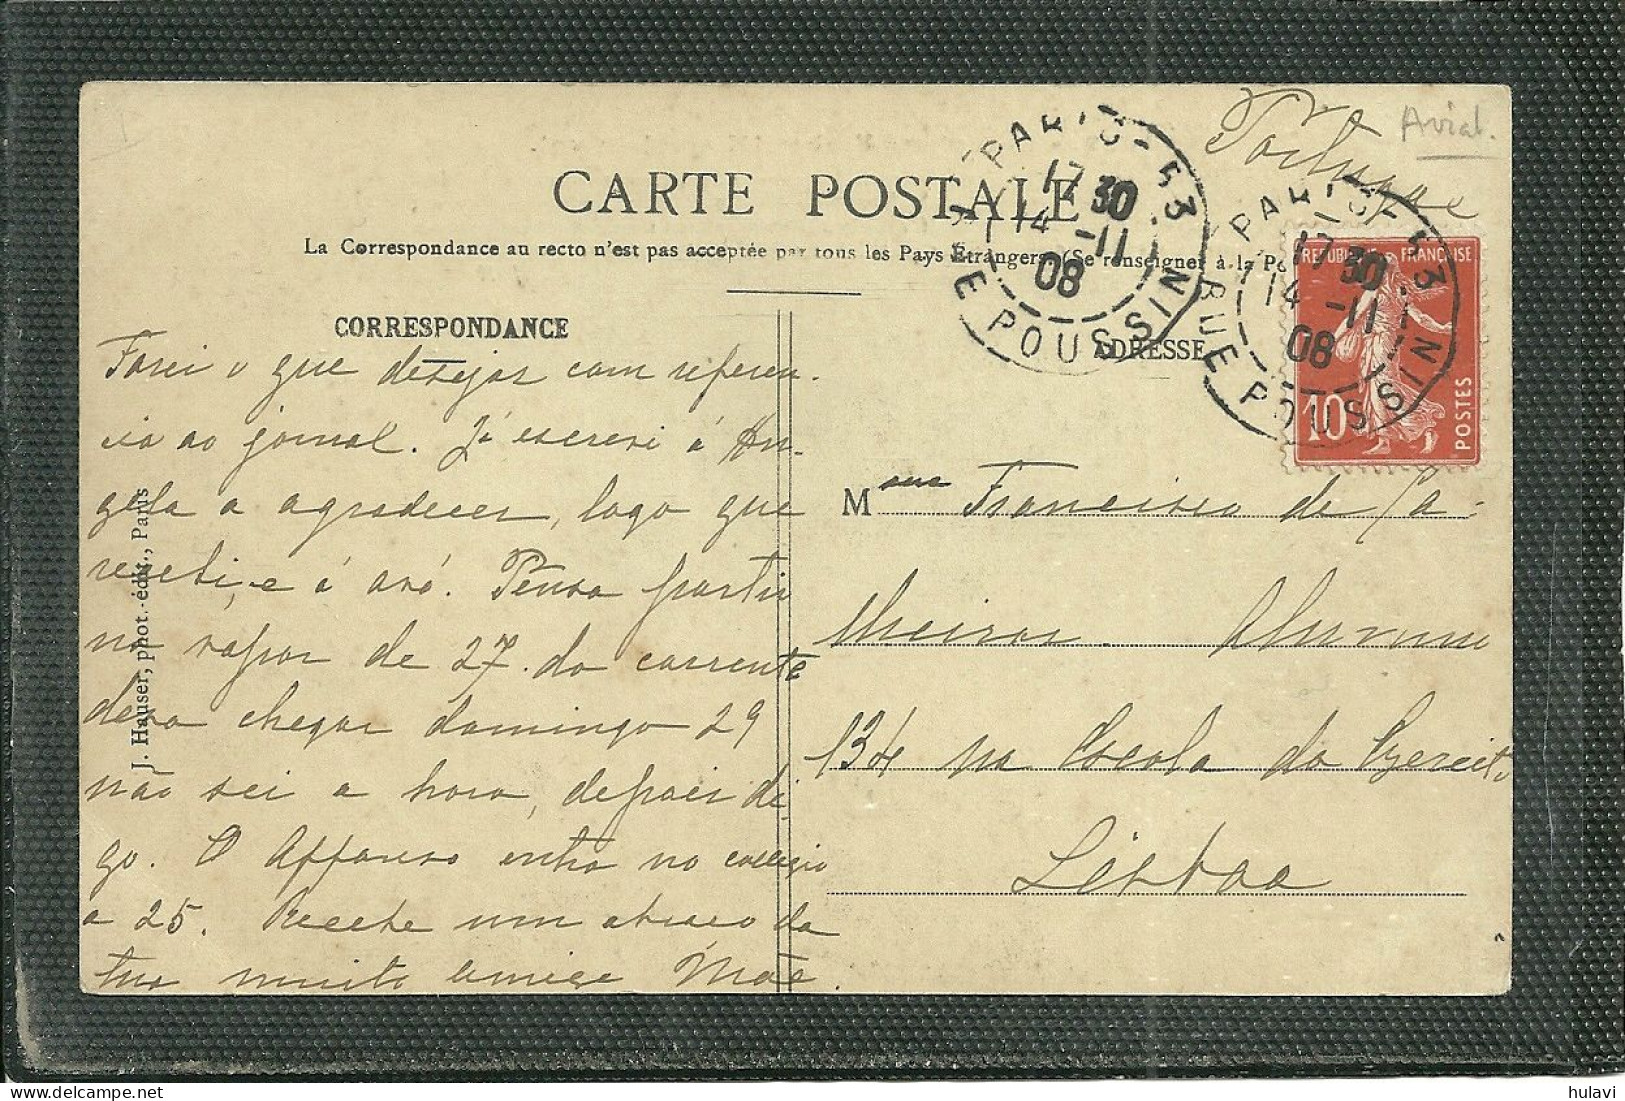 Portugal
Avial.
CARTE POSTALE
La Correspondance au recto n'est pas acceptée par tous les Pays Etrangers. (Se renseigner à la Po
PARIS-53
17 30
14 -11
08
RUE POUSSIN
PARIS-53
17 30
14 -11
08
RUE POUSSIN
REPUBLIQUE FRANÇAISE
10
POSTES
CORRESPONDANCE
ADRESSE
Farei o que desejas com referen-
cia ao jornal. Já escrevi á An-
gela a agradecer, logo que
recebi, e á avó. Penso partir
no vapor de 27 do corrente
devo chegar domingo 29
não sei a hora, depois di-
go. O Affonso entra no collegio
a 25. Recebe um abraço da
tua muito amiga Mãe.
Mme Francisco de Ca-
Alumno
134 na Escola do Exercito
Lisboa
J. Hauser, phot. édit., Paris
hulavi